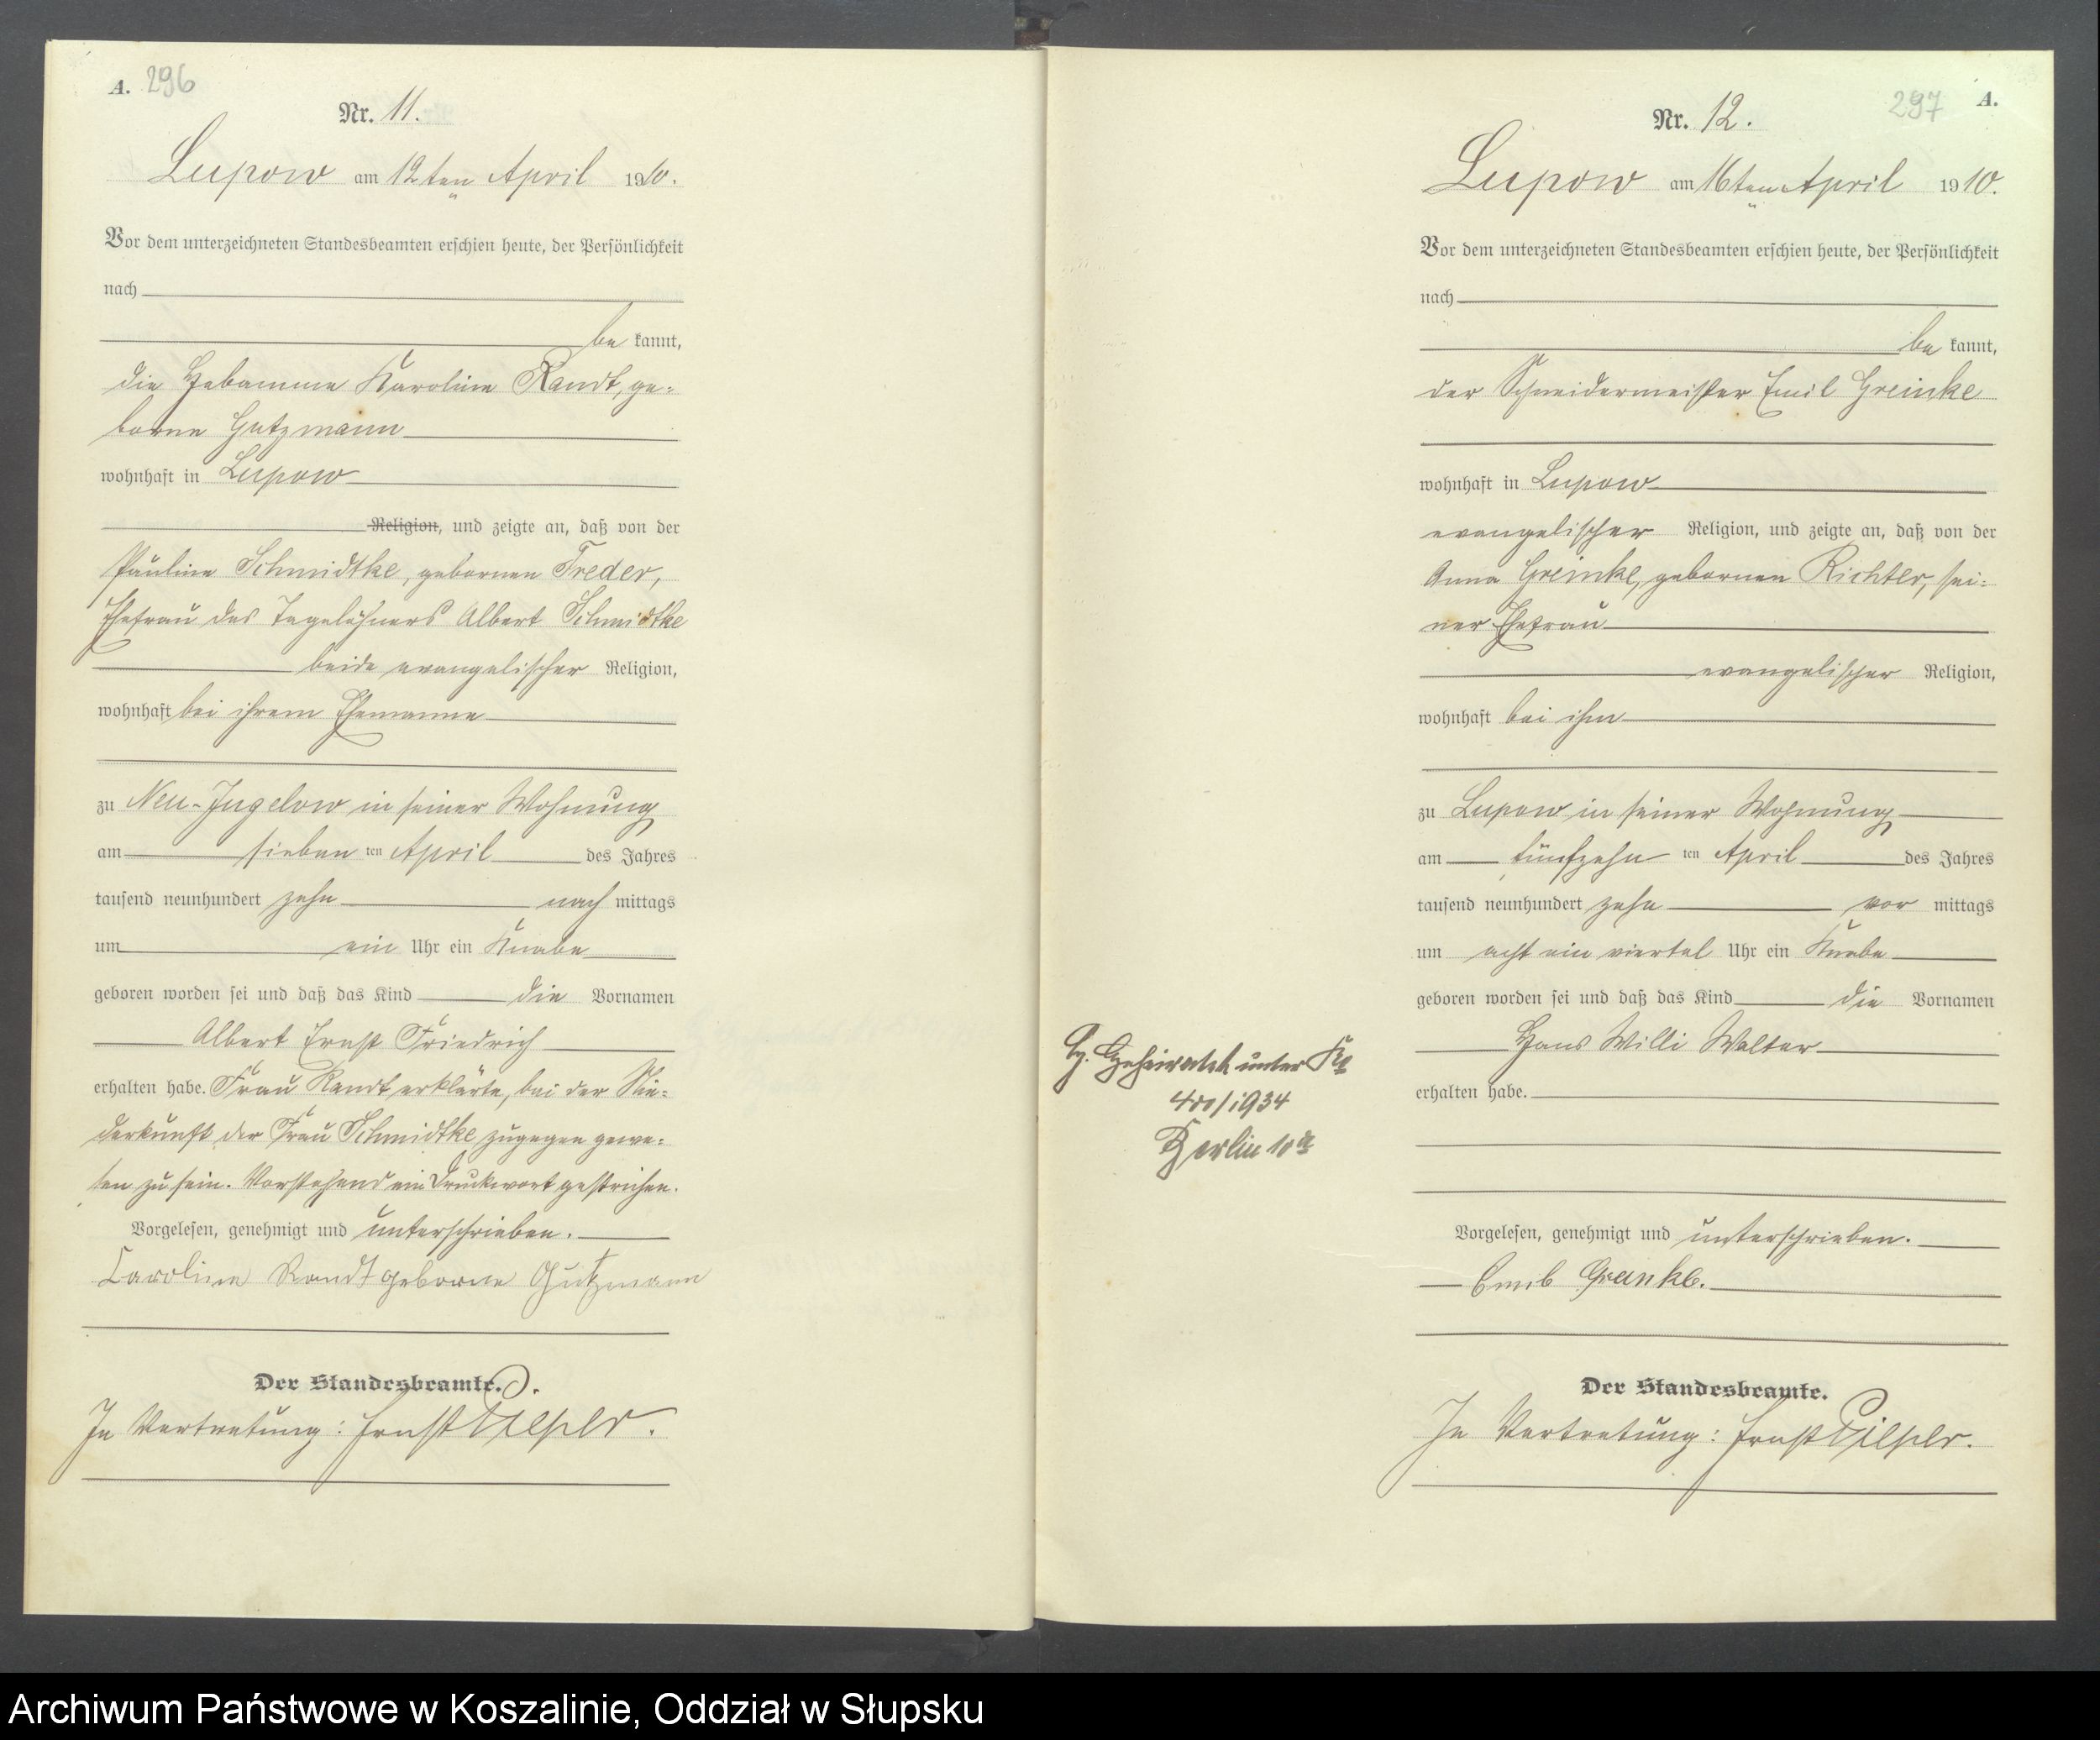 A. 296
Nr. 11.
Lupow am 12ten April 1910.
Vor dem unterzeichneten Standesbeamten erschien heute, der Persönlichkeit
nach
be kannt,
die Hebamme Karoline Randt, ge-
borne Gutzmann
wohnhaft in Lupow
Religion, und zeigte an, daß von der
Pauline Schmidtke, gebornen Treder,
Ehefrau des Tagelöhners Albert Schmidtke
beide evangelischer Religion,
wohnhaft bei ihrem Ehemanne
zu Neu-Jugelow in seiner Wohnung
am sieben ten April des Jahres
tausend neunhundert zehn nach mittags
um ein Uhr ein Knabe
geboren worden sei und daß das Kind die Vornamen
Albert Ernst Friedrich
erhalten habe. Frau Randt erklärte, bei der Nie-
derkunft der Frau Schmidtke zugegen gewe-
sen zu sein. Vorstehend ein Druckwort gestrichen.
Vorgelesen, genehmigt und unterschrieben.
Caroline Randt geborne Gutzmann
Der Standesbeamte.
In Vertretung: Ernst Pieper.
297 A.
Nr. 12.
Lupow am 16ten April 1910.
Vor dem unterzeichneten Standesbeamten erschien heute, der Persönlichkeit
nach
be kannt,
der Schneidermeister Emil Greinke
wohnhaft in Lupow
evangelischer Religion, und zeigte an, daß von der
Anna Greinke, gebornen Richter, sei-
ner Ehefrau
evangelischer Religion,
wohnhaft bei ihm
zu Lupow in seiner Wohnung
am fünfzehn ten April des Jahres
tausend neunhundert zehn vor mittags
um acht ein viertel Uhr ein Knabe
geboren worden sei und daß das Kind die Vornamen
Hans Willi Walter
erhalten habe.
Vorgelesen, genehmigt und unterschrieben.
Emil Greinke.
Der Standesbeamte.
In Vertretung: Ernst Pieper.
Geheiratet unter
400/1934
Berlin 10a
Archiwum Państwowe w Koszalinie, Oddział w Słupsku